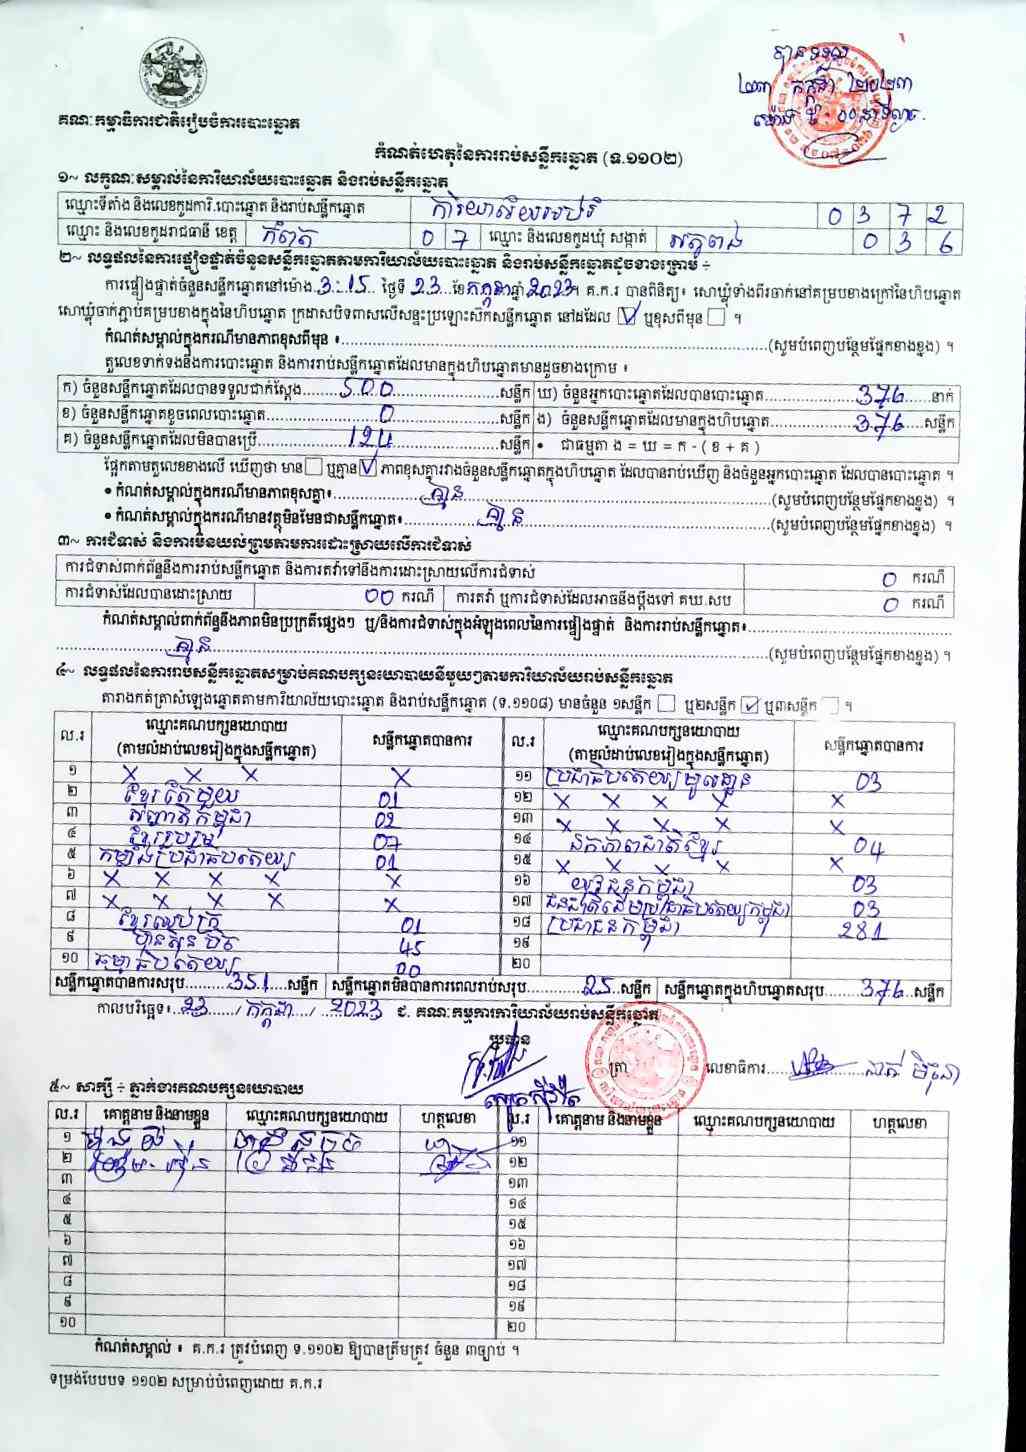 បានទទួល
២៣ កក្កដា ២០២៣
គណៈកម្មាធិការជាតិរៀបចំការបោះឆ្នោត
កំណត់ហេតុនៃការរាប់សន្លឹកឆ្នោត (ទ.១១០២)
១~ លក្ខណៈសម្គាល់នៃការិយាល័យបោះឆ្នោត និងរាប់សន្លឹកឆ្នោត
ឈ្មោះទីតាំង និងលេខកូដការិ.បោះឆ្នោត និងរាប់សន្លឹកឆ្នោត 0 3 7 2
ឈ្មោះ និងលេខកូដរាជធានី ខេត្ត កំពត 0 7 ឈ្មោះ និងលេខកូដឃុំ សង្កាត់ 0 3 6
២~ លទ្ធផលនៃការផ្ទៀងផ្ទាត់ចំនួនសន្លឹកឆ្នោតតាមការិយាល័យបោះឆ្នោត និងរាប់សន្លឹកឆ្នោតដូចខាងក្រោម ÷
ការផ្ទៀងផ្ទាត់ចំនួនសន្លឹកឆ្នោតនៅម៉ោង 3:15 ថ្ងៃទី 23 ខែ កក្កដា ឆ្នាំ 2023។ គ.ក.រ បានពិនិត្យ៖ សោឃ្លុំទាំងពីរចាក់នៅគម្របខាងក្រៅនៃហិបឆ្នោត
សោឃ្លុំចាក់ភ្ជាប់គម្របខាងក្នុងនៃហិបឆ្នោត ក្រដាសបិទពាសលើសន្ទះប្រឡោះស៊កសន្លឹកឆ្នោត នៅដដែល ☑ ឬខុសពីមុន ☐ ។
កំណត់សម្គាល់ក្នុងករណីមានភាពខុសពីមុន ៖ (សូមបំពេញបន្ថែមផ្នែកខាងខ្នង) ។
តួលេខទាក់ទងនឹងការបោះឆ្នោត និងការរាប់សន្លឹកឆ្នោតដែលមានក្នុងហិបឆ្នោតមានដូចខាងក្រោម ៖
ក) ចំនួនសន្លឹកឆ្នោតដែលបានទទួលជាក់ស្តែង 500 សន្លឹក ឃ) ចំនួនអ្នកបោះឆ្នោតដែលបានបោះឆ្នោត 376 នាក់
ខ) ចំនួនសន្លឹកឆ្នោតខូចពេលបោះឆ្នោត 0 សន្លឹក ង) ចំនួនសន្លឹកឆ្នោតដែលមានក្នុងហិបឆ្នោត 376 សន្លឹក
គ) ចំនួនសន្លឹកឆ្នោតដែលមិនបានប្រើ 124 សន្លឹក • ជាធម្មតា ង = ឃ = ក - ( ខ + គ )
ផ្អែកតាមតួលេខខាងលើ ឃើញថា មាន ☐ ឬគ្មាន ☑ ភាពខុសគ្នារវាងចំនួនសន្លឹកឆ្នោតក្នុងហិបឆ្នោត ដែលបានរាប់ឃើញ និងចំនួនអ្នកបោះឆ្នោត ដែលបានបោះឆ្នោត ។
• កំណត់សម្គាល់ក្នុងករណីមានភាពខុសគ្នា៖ គ្មាន (សូមបំពេញបន្ថែមផ្នែកខាងខ្នង) ។
• កំណត់សម្គាល់ក្នុងករណីមានវត្ថុមិនមែនជាសន្លឹកឆ្នោត៖ គ្មាន (សូមបំពេញបន្ថែមផ្នែកខាងខ្នង) ។
៣~ ការជំទាស់ និងការមិនយល់ព្រមតាមការដោះស្រាយលើការជំទាស់
ការជំទាស់ពាក់ព័ន្ធនឹងការរាប់សន្លឹកឆ្នោត និងការតវ៉ាទៅនឹងការដោះស្រាយលើការជំទាស់ 0 ករណី
ការជំទាស់ដែលបានដោះស្រាយ 00 ករណី ការតវ៉ា ឬការជំទាស់ដែលអាចនឹងប្តឹងទៅ គឃ.សប 0 ករណី
កំណត់សម្គាល់ពាក់ព័ន្ធនឹងភាពមិនប្រក្រតីផ្សេងៗ ឬ/និងការជំទាស់ក្នុងអំឡុងពេលនៃការផ្ទៀងផ្ទាត់ និងការរាប់សន្លឹកឆ្នោត៖
គ្មាន (សូមបំពេញបន្ថែមផ្នែកខាងខ្នង) ។
៤~ លទ្ធផលនៃការរាប់សន្លឹកឆ្នោតសម្រាប់គណបក្សនយោបាយនីមួយៗតាមការិយាល័យរាប់សន្លឹកឆ្នោត
តារាងកត់ត្រាសំឡេងឆ្នោតតាមការិយាល័យបោះឆ្នោត និងរាប់សន្លឹកឆ្នោត (ទ.១១០៨) មានចំនួន ១សន្លឹក ☐ ឬ២សន្លឹក ☑ ឬ៣សន្លឹក ☐ ។
ល.រ ឈ្មោះគណបក្សនយោបាយ (តាមលំដាប់លេខរៀងក្នុងសន្លឹកឆ្នោត) សន្លឹកឆ្នោតបានការ ល.រ ឈ្មោះគណបក្សនយោបាយ (តាមលំដាប់លេខរៀងក្នុងសន្លឹកឆ្នោត) សន្លឹកឆ្នោតបានការ
១ X X X X ១១ ប្រជាធិបតេយ្យមូលដ្ឋាន 03
២ ខ្មែរតែមួយ 01 ១២ X X X X X
៣ សញ្ជាតិកម្ពុជា 02 ១៣ X X X X X
៤ ខ្មែររួបរួម 07 ១៤ ឯកភាពជាតិខ្មែរ 04
៥ កម្លាំងប្រជាធិបតេយ្យ 01 ១៥ X X X X X
៦ X X X X X ១៦ យុវជនកម្ពុជា 03
៧ X X X X X ១៧ ជនជាតិដើមប្រជាធិបតេយ្យកម្ពុជា 03
៨ 01 ១៨ ប្រជាជនកម្ពុជា 281
៩ ហ៊្វុនស៊ិនប៉ិច 45 ១៩
១០ ធម្មាធិបតេយ្យ 00 ២០
សន្លឹកឆ្នោតបានការសរុប 351 សន្លឹក សន្លឹកឆ្នោតមិនបានការពេលរាប់សរុប 25 សន្លឹក សន្លឹកឆ្នោតក្នុងហិបឆ្នោតសរុប 376 សន្លឹក
កាលបរិច្ឆេទ៖ 23 / កក្កដា / 2023 ជ. គណៈកម្មការការិយាល័យរាប់សន្លឹកឆ្នោត
ប្រធាន
ត្រា លេខាធិការ
៥~ សាក្សី ÷ ភ្នាក់ងារគណបក្សនយោបាយ
ល.រ គោត្តនាម និងនាមខ្លួន ឈ្មោះគណបក្សនយោបាយ ហត្ថលេខា ល.រ គោត្តនាម និងនាមខ្លួន ឈ្មោះគណបក្សនយោបាយ ហត្ថលេខា
១ ១១
២ ១២
៣ ១៣
៤ ១៤
៥ ១៥
៦ ១៦
៧ ១៧
៨ ១៨
៩ ១៩
១០ ២០
កំណត់សម្គាល់ ៖ គ.ក.រ ត្រូវបំពេញ ទ.១១០២ ឱ្យបានត្រឹមត្រូវ ចំនួន ៣ច្បាប់ ។
ទម្រង់បែបបទ ១១០២ សម្រាប់បំពេញដោយ គ.ក.រ